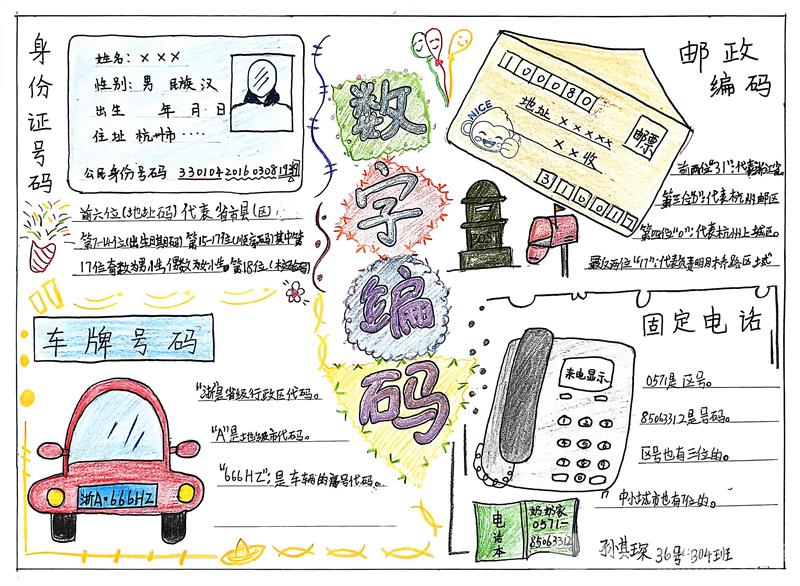 身份证号码
姓名：×××
性别：男 民族 汉
出生 年 月 日
住址 杭州市····
公民身份号码
前六位(地址码)代表省市县(区)：
第7-14位(出生日期码)第15-17位(顺序码)其中第
17位奇数为男生，偶数为女生。第18位
数字编码
100080
地址×××××
××收
邮票
NICE
310017
POST
邮政
编码
前两位"31"：代表浙江省。
代表杭州邮区
第四位"0"：代表杭州上城区。
最后两位"17"：代表
车牌号码
浙A·666HZ
"浙"是省级行政区代码。
"A"是地级市代码。
"666HZ"，是车辆的序号代码。
固定电话
来电显示
0571是区号。
85063312是号码。
区号也有三位的。
中小城市也有7位的。
电话本
奶奶家
0571-
85063312
36号 304班